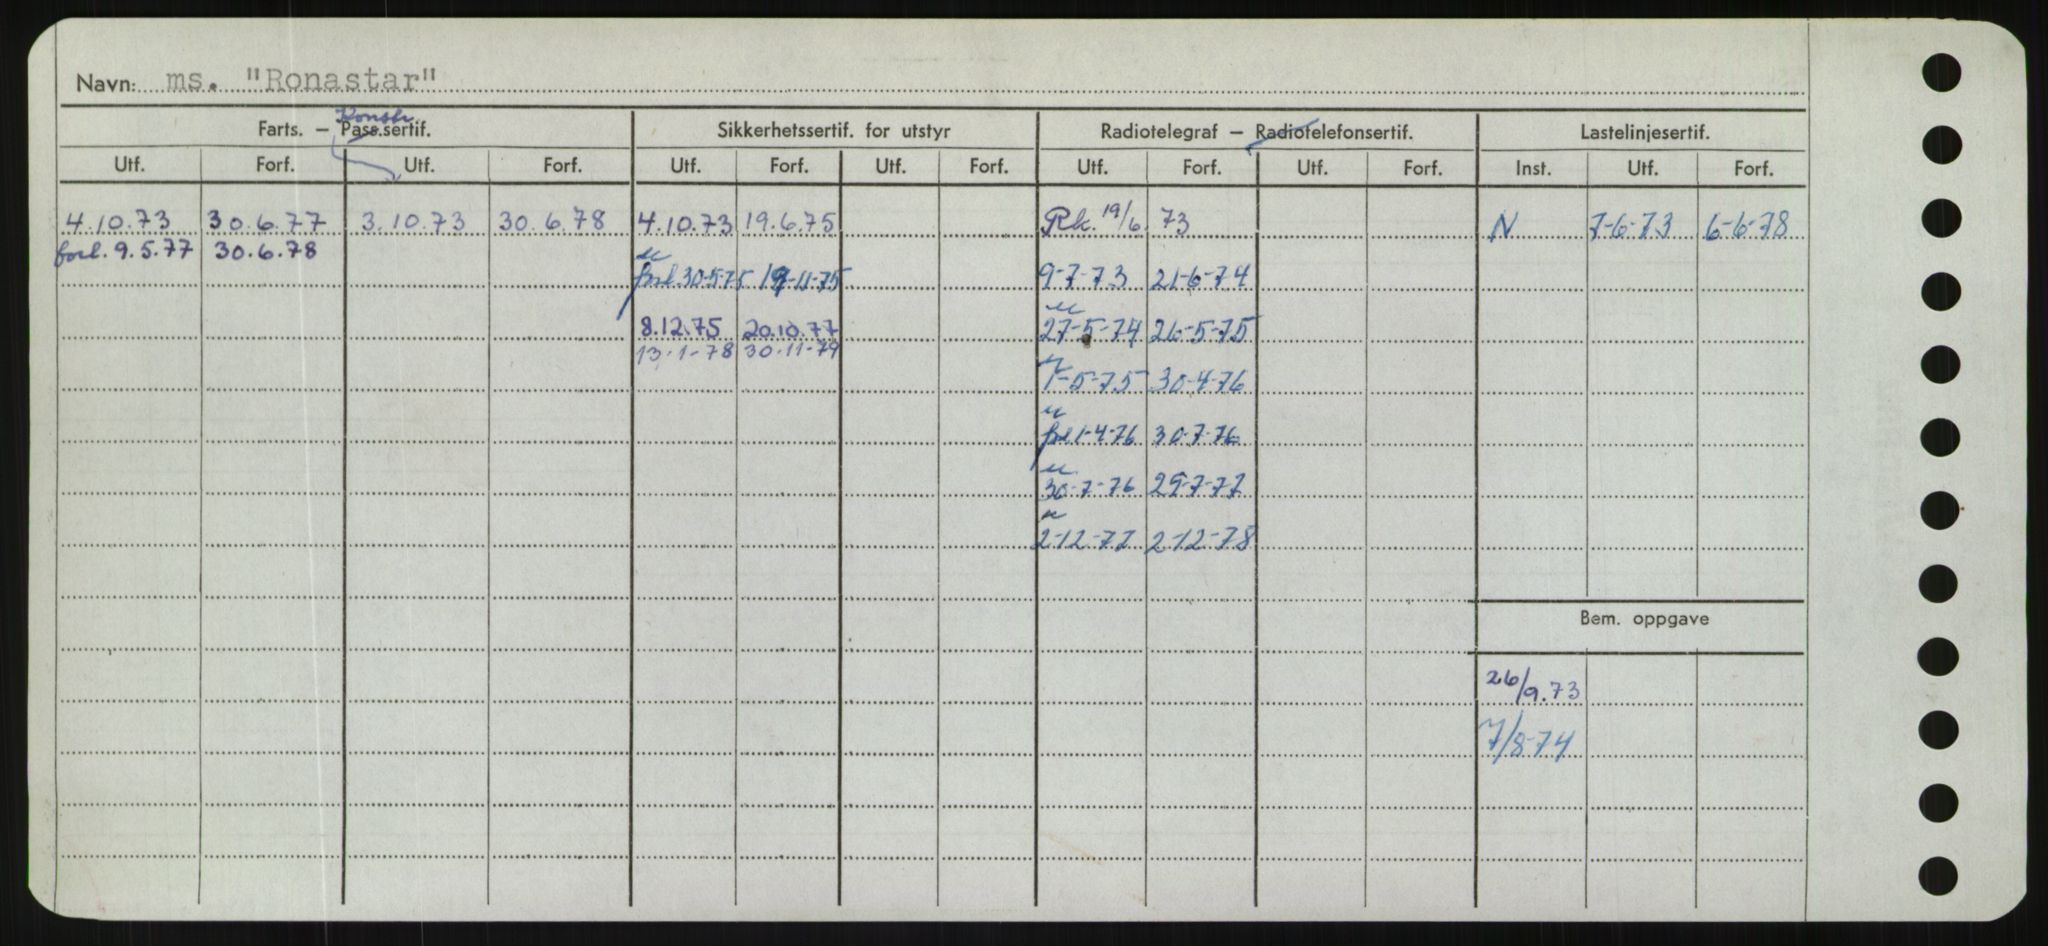 Navn: ms. "Ronastar"
Konstr
Farts. – Pass.sertif. Sikkerhetssertif. for utstyr Radiotelegraf – Radiotelefonsertif. Lastelinjesertif.
Utf. Forf. Utf. Forf. Utf. Forf. Utf. Forf. Utf. Forf. Utf. Forf. Inst. Utf. Forf.
4.10.73 30.6.77 3.10.73 30.6.78 4.10.73 19.6.75 Rk. 19/6 73 N 7-6-73 6-6-78
forl. 9.5.77 30.6.78
forl 30-5-75 19-11-75 9-7-73 21-6-74
8.12.75 20.10.77 27-5-74 26-5-75
13-1-78 30-11-79
1-5-75 30-4-76
forl 1-4-76 30-7-76
30-7-76 29-7-77
2-12-77 2-12-78
Bem. oppgave
26/9.73
7/8-74